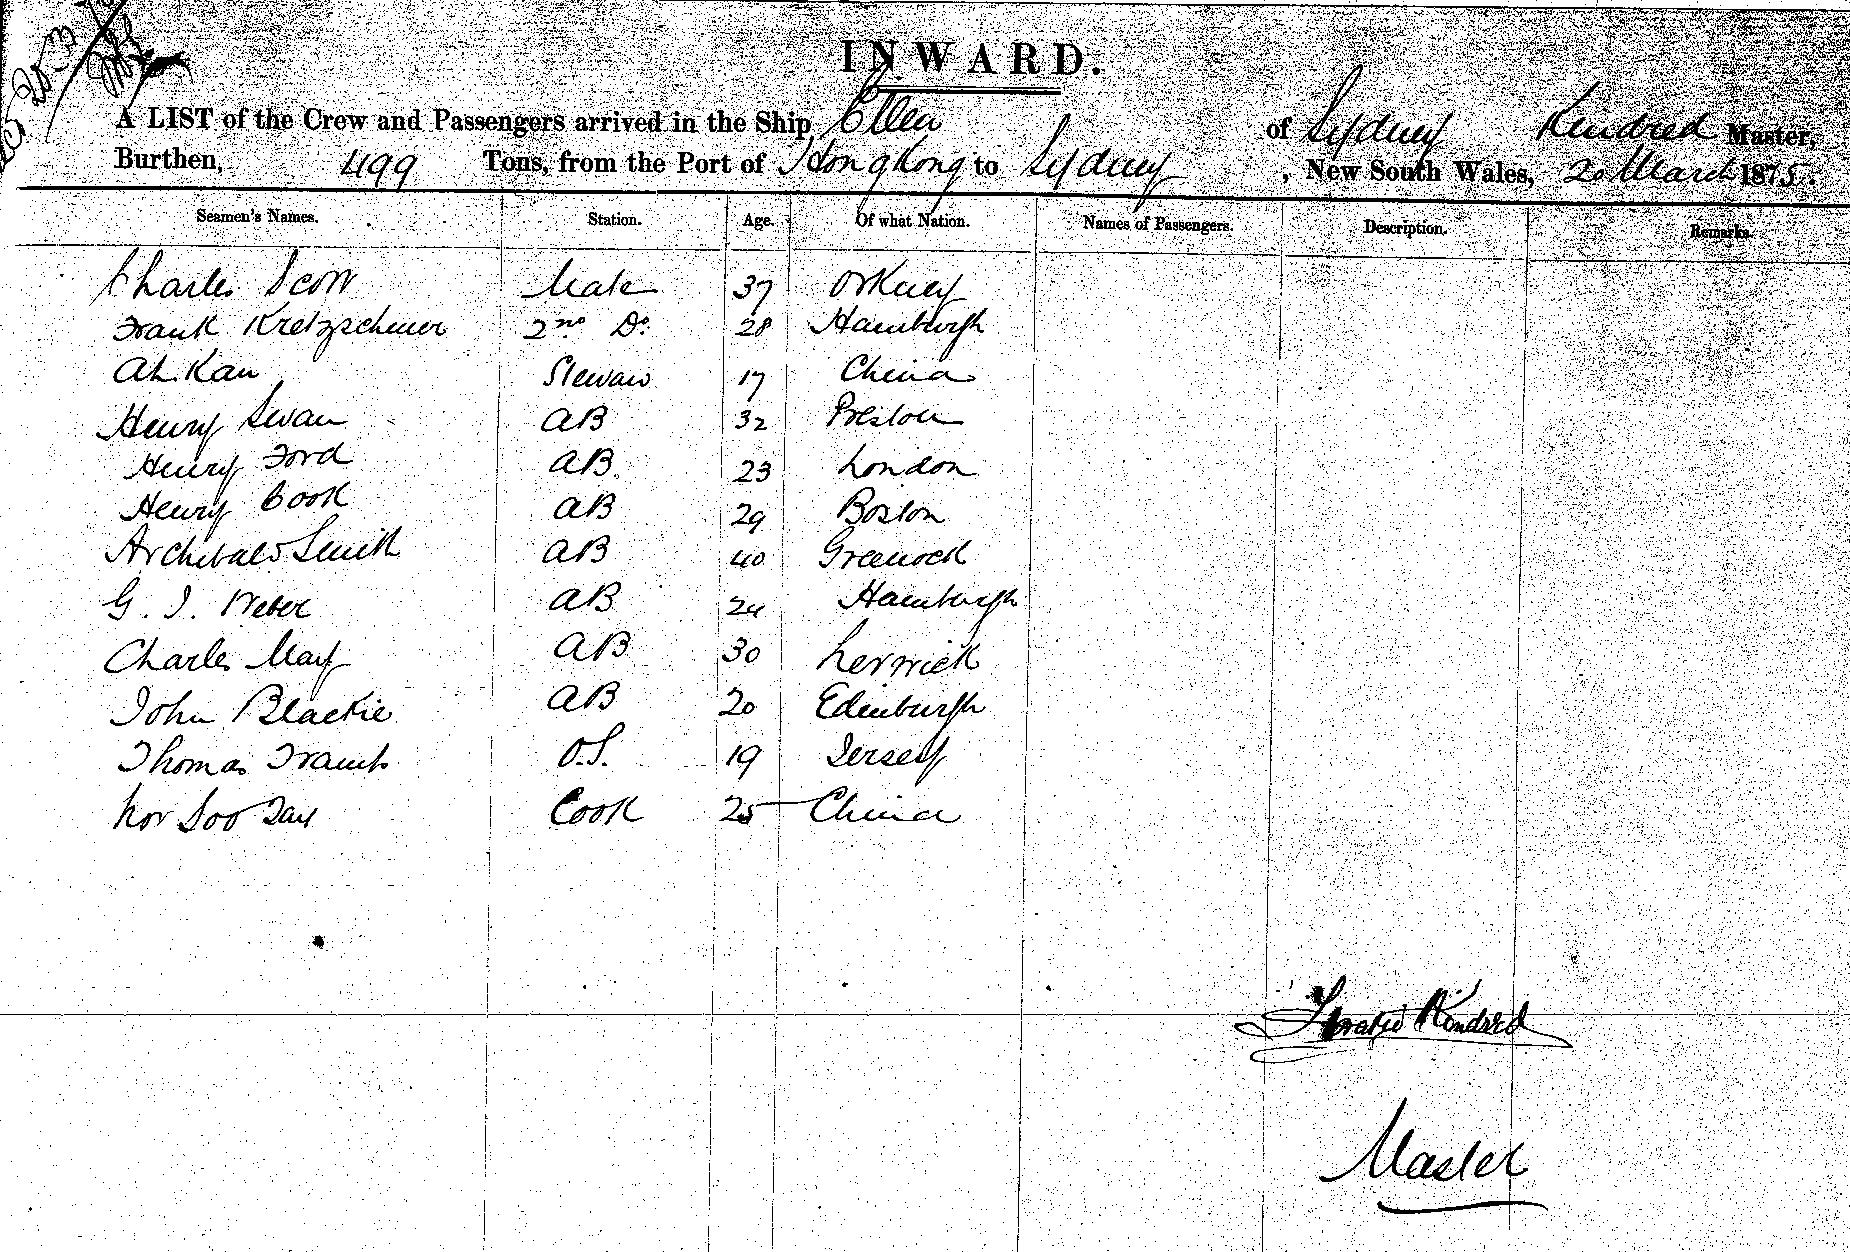 INWARD.
A LIST of the Crew and Passengers arrived in the Ship Ellen of Sydney Kendred Master,
Burthen, 499 Tons, from the Port of Hong Kong to Sydney, New South Wales, 20 March 1875.
Seamen's Names. Station. Age. Of what Nation. Names of Passengers. Description. Remarks.
Charles Scott Mate 37 Orkney
Frank 2nd Do. 28 Hamburgh
Ah Kau Steward 17 China
Henry Swan AB 32 Preston
Henry Ford AB 23 London
Henry Cook AB 29 Boston
Archibald Smith AB 40 Greenock
G. J. Weber AB 24 Hamburgh
Charles May AB 30 Lerwick
John Blackie AB 20 Edinburgh
Thomas O.S. 19 Jersey
Soo Cook 25 China
Horatio Kendred
Master